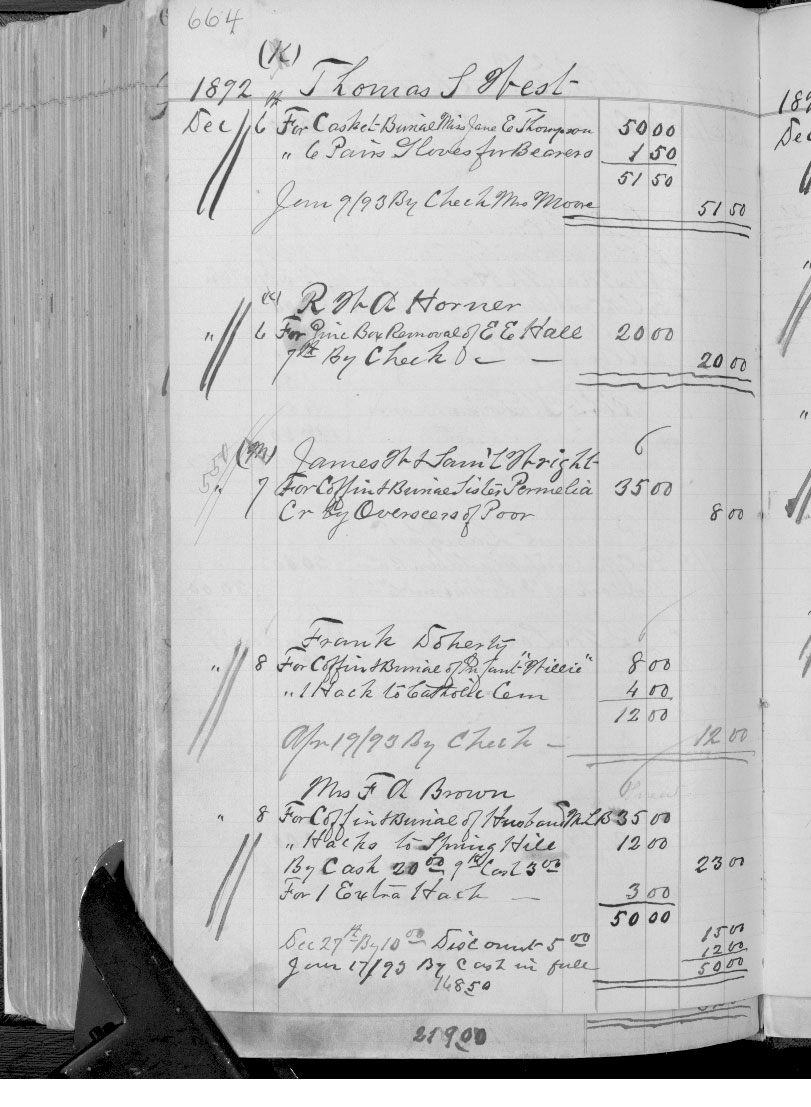 664
(K)
1892 Thomas S West
Dec 6 For Casket & Burial Miss Jane E Thompson 50 00
" 6 Pairs Gloves for Bearers 1 50
51 50
Jan 9/93 By Check Mrs Moore 51 50
(K) R W A Horner
" 6 For Pine Box Removal of E E Hall 20 00
7th By Check 20 00
(M) James W & Saml Wright
" 7 For Coffin & Burial Sister Permelia 35 00
Cr by Overseers of Poor 8 00
Frank Doherty
" 8 For Coffin & Burial of Infant "Willie" 8 00
" 1 Hack to Catholic Cem 4 00
12 00
Apr 19/93 By Check 12 00
Mrs F A Brown
" 8 For Coffin & Burial of Husband W L B 35 00
" Hacks to Spring Hill 12 00
By Cash 20 00 9th Cash 3 00 23 00
For 1 Extra Hack 3 00
50 00
Dec 27th By 10 00 Discount 5 00 15 00
Jan 17/93 By Cash in full 12 00
50 00
148 50
219 00
189
Dec